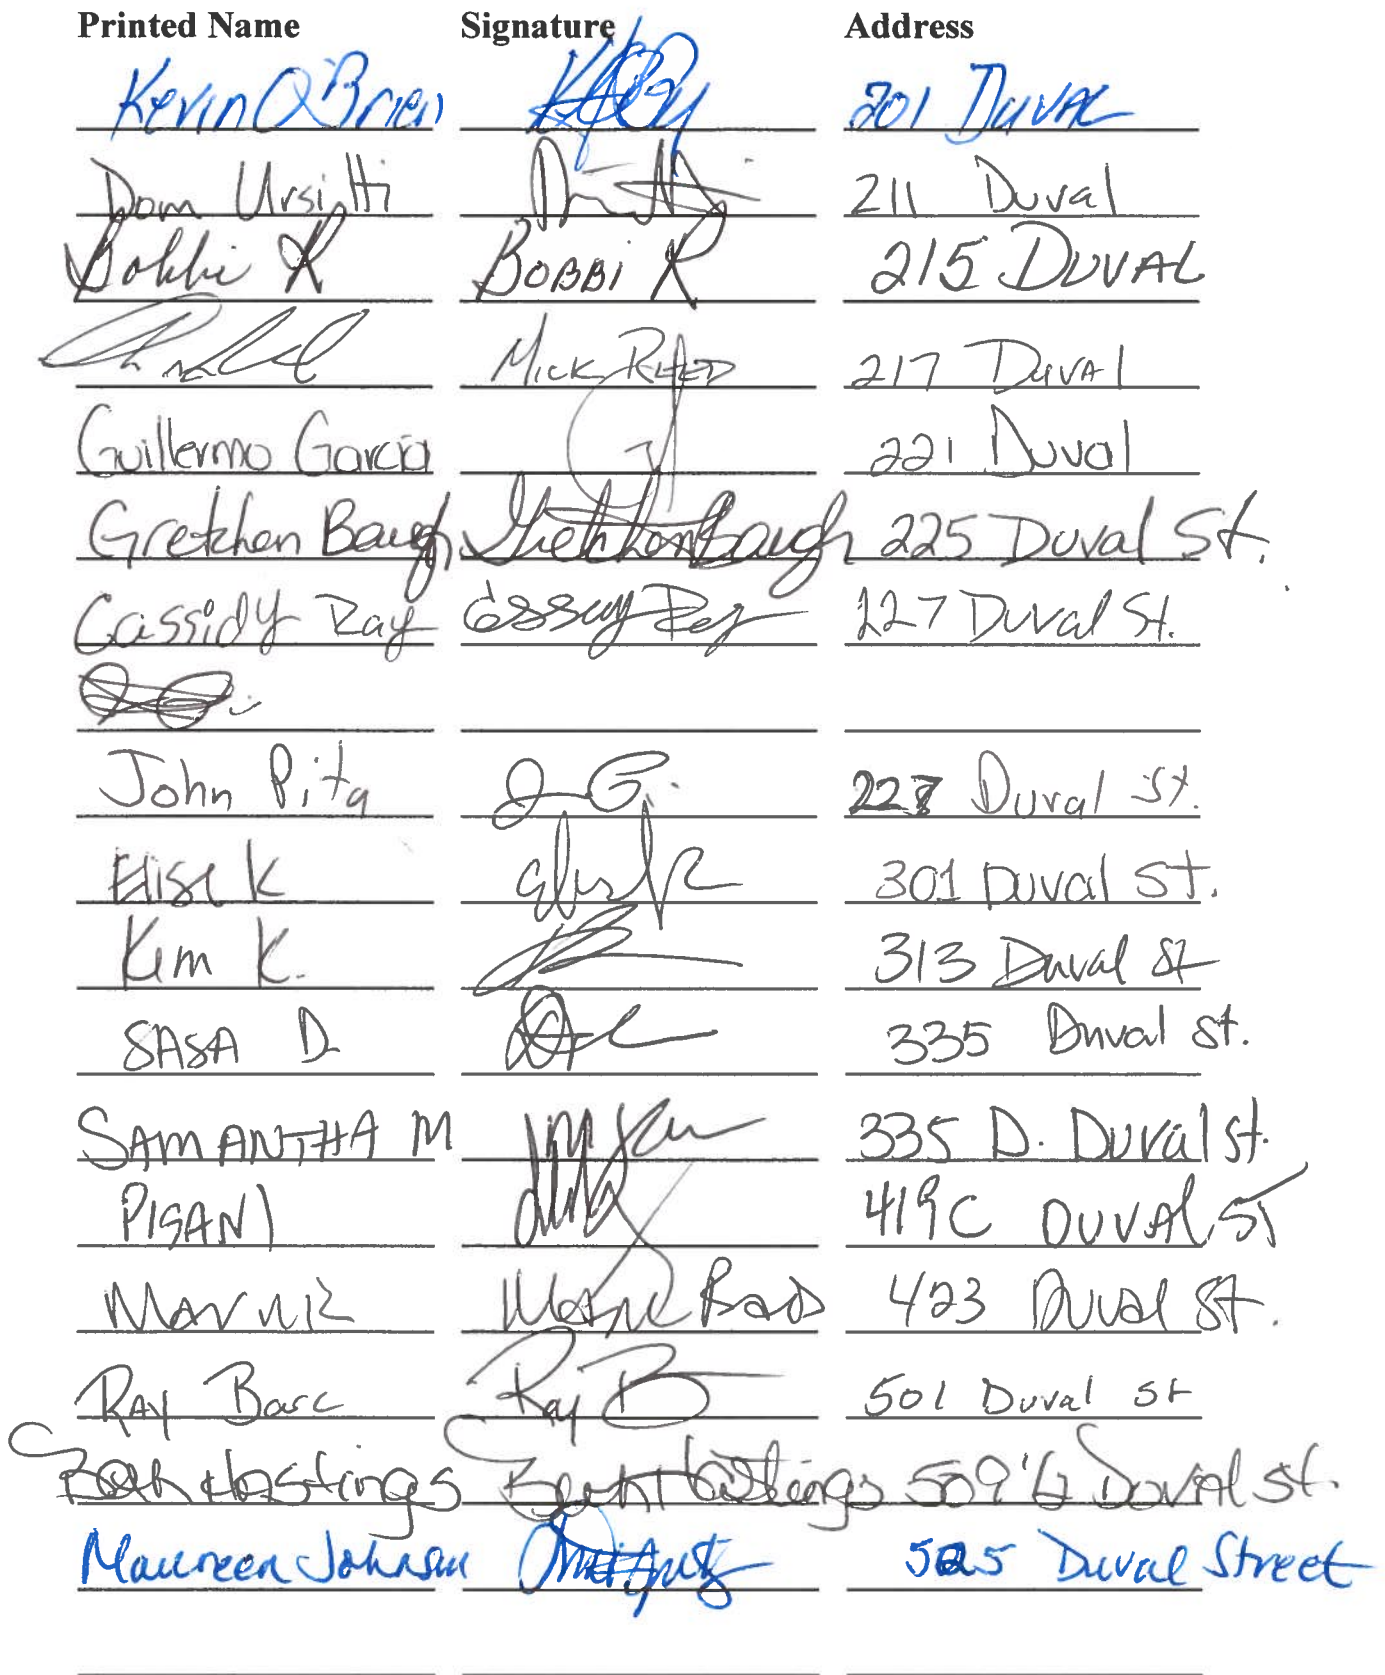 Printed Name Signature Address
Kevin O'Brien 201 Duval
Dom Ursitti 211 Duval
Bobbi R BOBBI R 215 DUVAL
MICK REED 217 Duval
Guillermo Garcia 221 Duval
Gretchen Baugh Gretchen Baugh 225 Duval St.
Cassidy Ray 227 Duval St.
John Pita 227 Duval St.
Elise K 301 Duval St.
Kim K. 313 Duval St
SASA D 335 Duval St.
SAMANTHA M 335 D. Duval St.
PISANI 419C DUVAL ST
423 Duval St.
RAY Ray B 501 Duval St
Beth Hastings Beth Hastings 509 1/2 Duval St.
Maureen Johnson 525 Duval Street